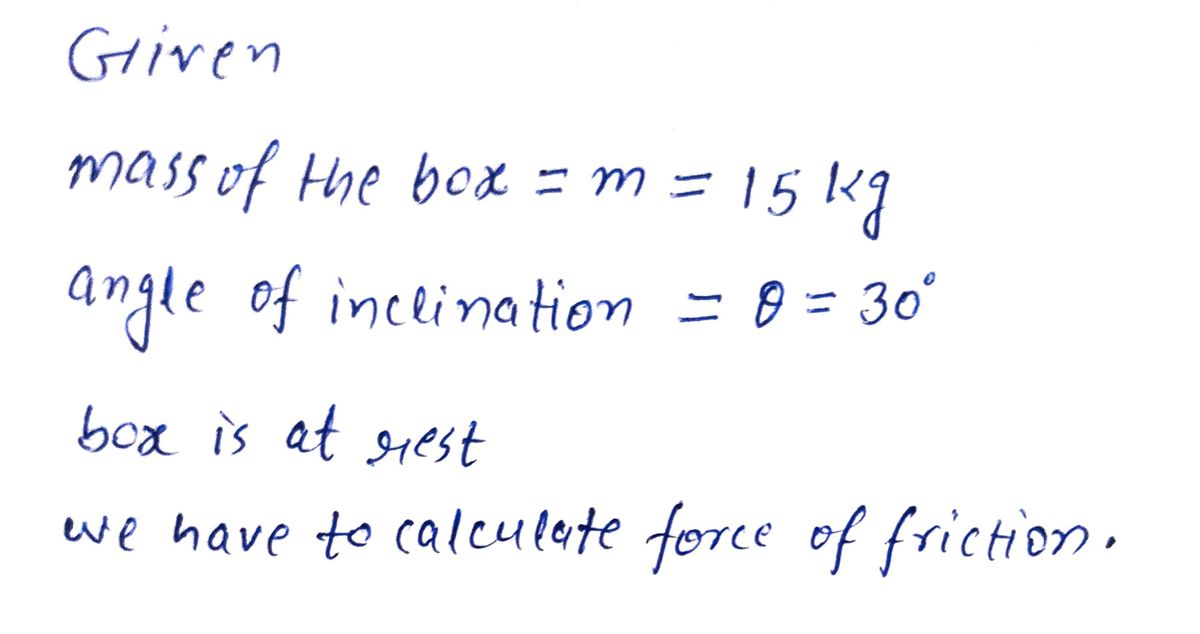 Given
mass of the box = m = 15 kg
angle of inclination = θ = 30°
box is at rest
we have to calculate force of friction.